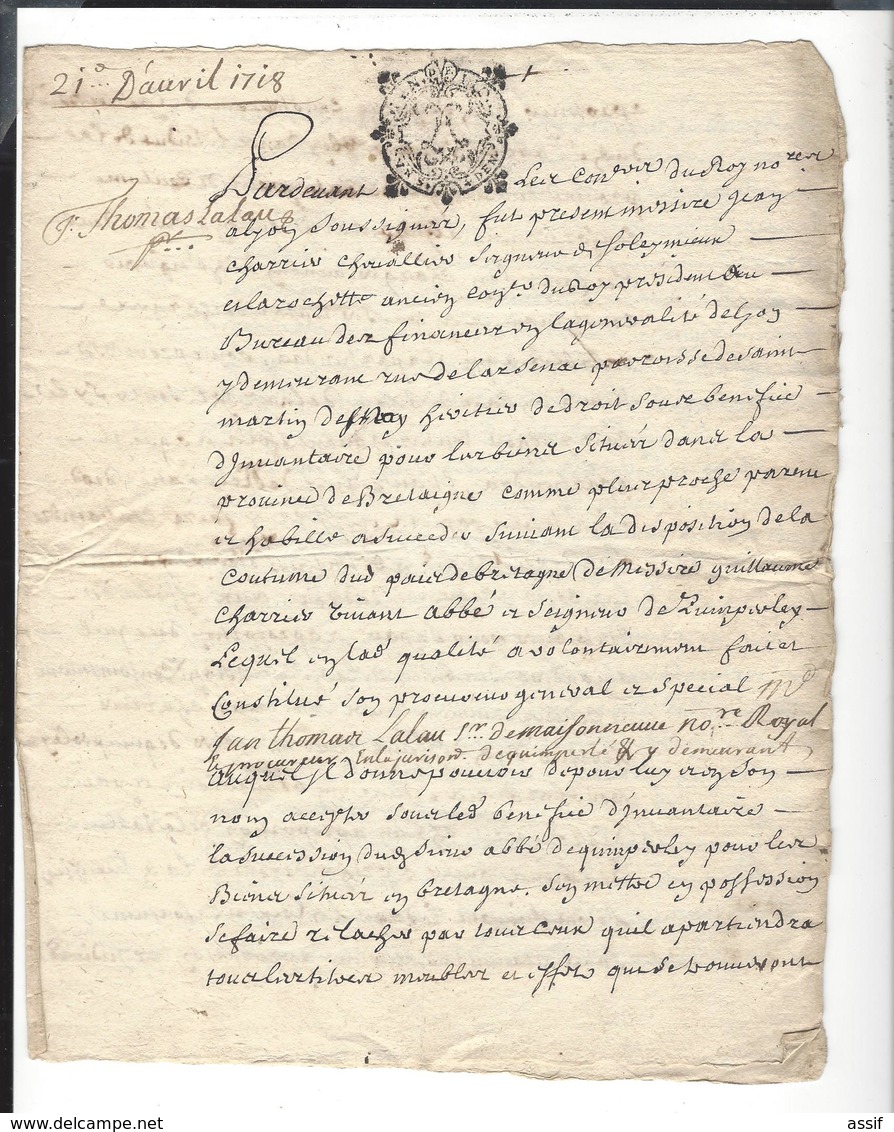 21e D'auril 1718
Pardevant Les Coners du Roy nores
Jn Thomas Lalau
alyon soussignés, fut present messire Jean
charrier chevallier seigneur de soleymieux
et larochette ancien du Roy president au
Bureau des finances en lageneralité de lyon
y demeurant rue de larsenac parroisse de saint
martin desnay héritier de droit sous benefice
dInuantaire pour les biens situés dans la
prouince de Bretaigne comme plus proche parent
et habille asucceder suiuant la disposition de la
coutume dud pais de bretagne de Messire guillaume
charrier viuant abbé et seigneur de Quimperley
Lequel en lad qualité a volontairement fait et
Constitué son procureur general et special Me
Jan thomas Lalau sr. demaisonneuue nore Royal
et procureur Enla jurison. de quimperlé & y demeurant
auquel Il donne pouuoir de pour luy et en son
nom accepter sous led benefice dInuantaire
la succession dud sieur abbé de quimperley pour les
Biens situés en bretagne. Sen mettre en possession
se faire relacher par tous ceux quil apartiendra
tous les titres meubles et effets qui se trouueront
assif